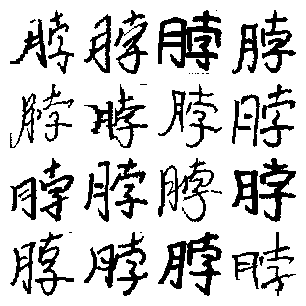 脖脖脖脖
脖脖脖脖
脖脖脖脖
脖脖脖脖